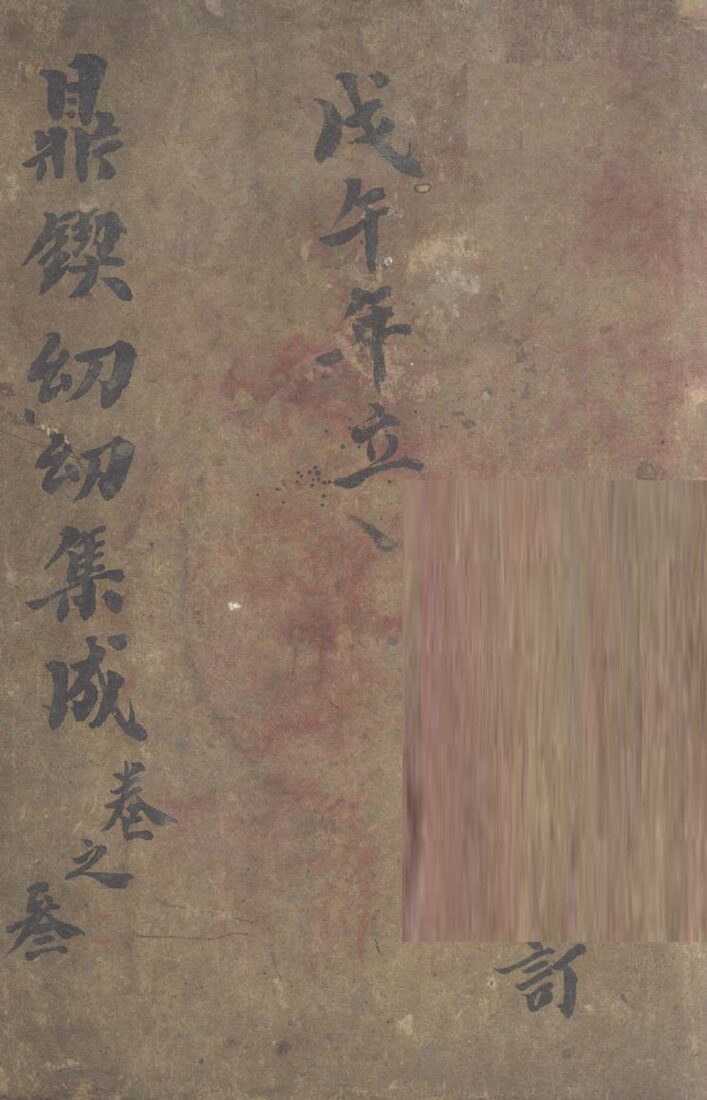 訂
戊午年立
鼎鍥幼幼集成
卷之叁